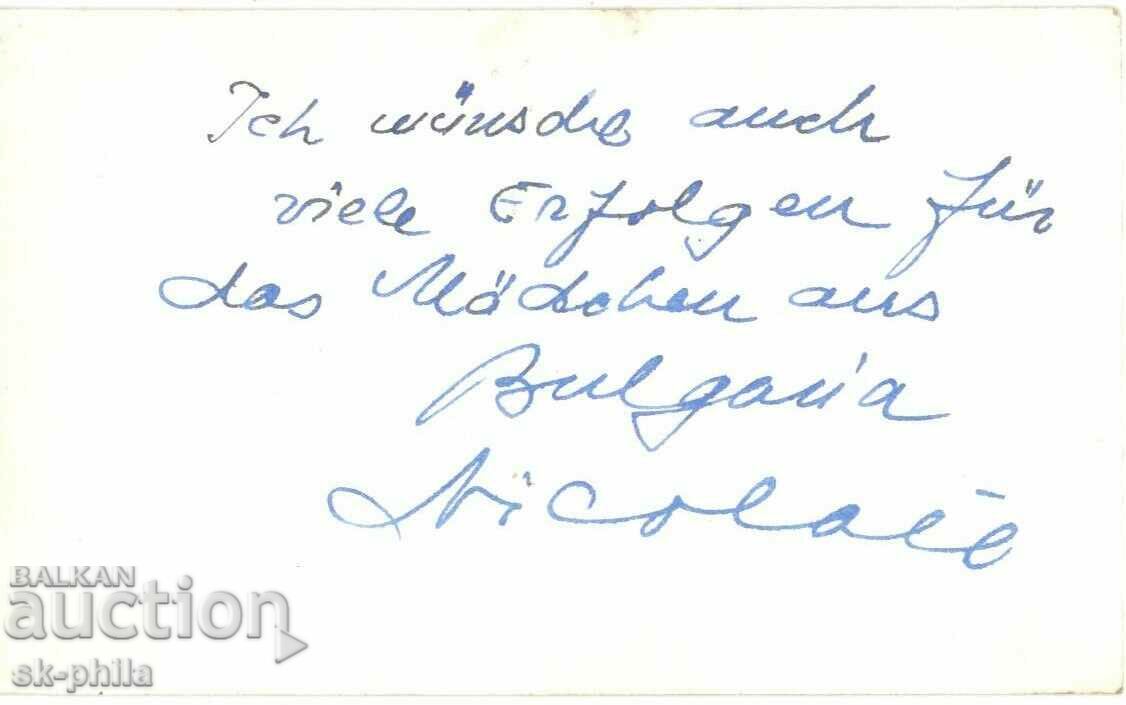 Ich wünsche auch
viele Erfolgen für
das Mädchen aus
Bulgaria
Nicolaie
BALKAN
auction
sk-phila